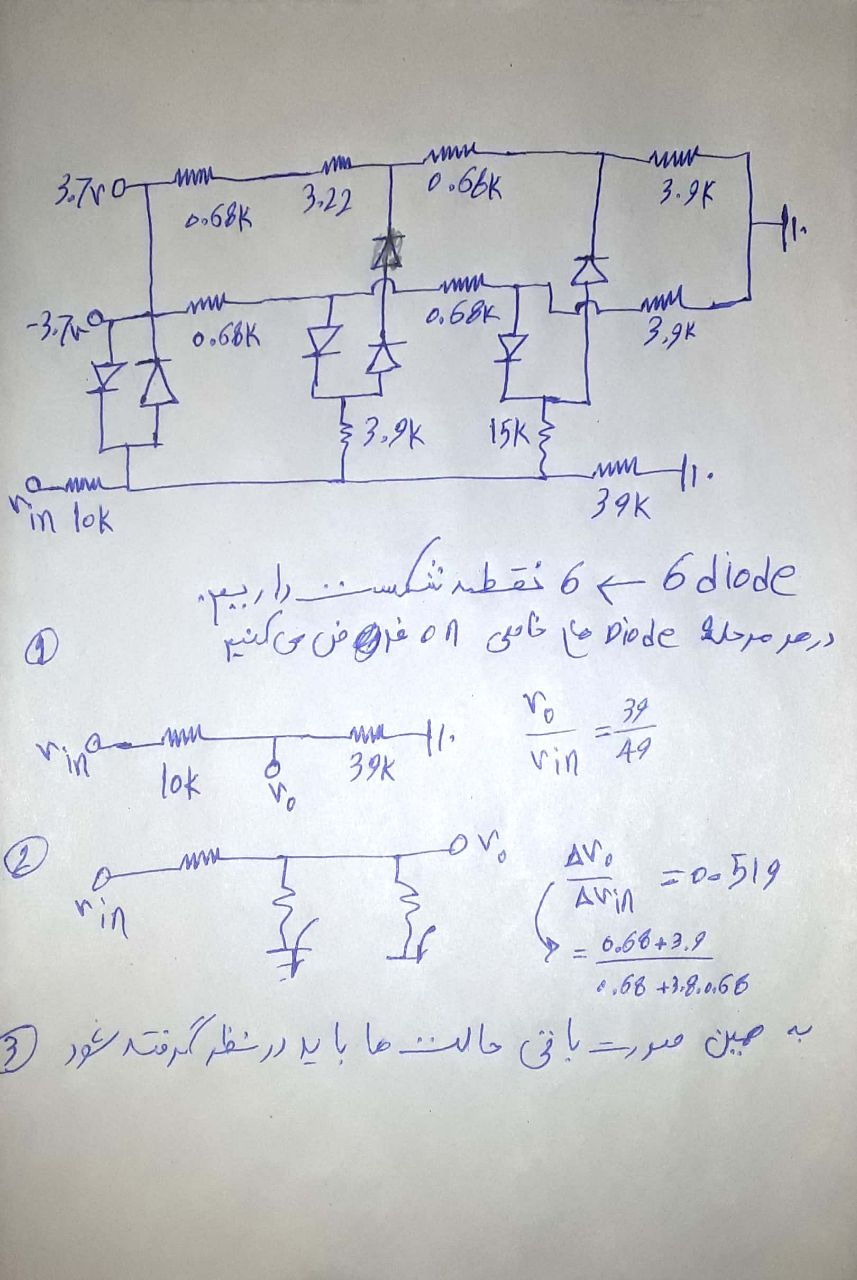 3.7v
0.68K
3.22
0.68K
3.9K
-3.7v
0.68K
0.68K
3.9K
3.9K
15K
vin 10K
39K
6 diode → 6 نقطه شکست داریم.
① در هر مرحله Diode های خاصی on فرض می کنیم
vin
10K
vo
39K
vo/vin = 39/49
②
vin
vo
Δvo/Δvin = 0.519
= 0.68+3.9
0.68+3.8.0.68
③ به همین صورت باقی حالت ها باید در نظر گرفته شود